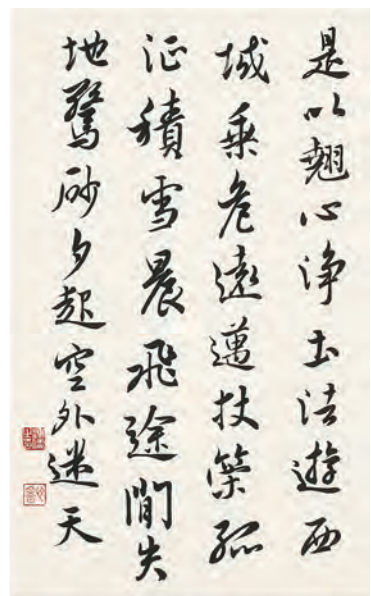 是以翹心淨土法遊西
域乘危遠邁杖策孤
征積雪晨飛途閒失
地驚砂夕起空外迷天